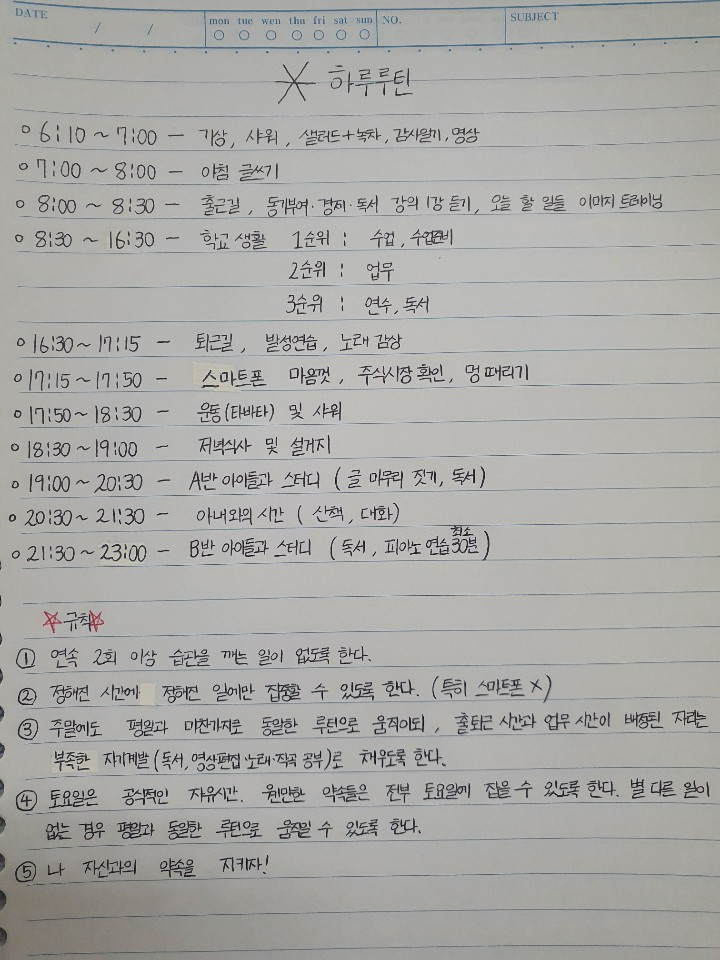 DATE / / mon tue wen thu fri sat sun NO. SUBJECT
※ 하루루틴
o 6:10 ~ 7:00 - 기상, 샤워, 샐러드+녹차, 감사일기, 명상
o 7:00 ~ 8:00 - 아침 글쓰기
o 8:00 ~ 8:30 - 출근길, 동기부여·경제·독서 강의 1강 듣기, 오늘 할 일들 이미지 트레이닝
o 8:30 ~ 16:30 - 학교 생활 1순위 : 수업, 수업준비
2순위 : 업무
3순위 : 연수, 독서
o 16:30 ~ 17:15 - 퇴근길, 발성연습, 노래 감상
o 17:15 ~ 17:50 - 스마트폰 마음껏, 주식시장 확인, 멍 때리기
o 17:50 ~ 18:30 - 운동(타바타) 및 샤워
o 18:30 ~ 19:00 - 저녁식사 및 설거지
o 19:00 ~ 20:30 - A반 아이들과 스터디 (글 마무리 짓기, 독서)
o 20:30 ~ 21:30 - 아내와의 시간 (산책, 대화)
o 21:30 ~ 23:00 - B반 아이들과 스터디 (독서, 피아노 연습 최소 30분)
☆규칙☆
① 연속 2회 이상 습관을 깨는 일이 없도록 한다.
② 정해진 시간에 정해진 일에만 집중할 수 있도록 한다. (특히 스마트폰 X)
③ 주말에도 평일과 마찬가지로 동일한 루틴으로 움직이되, 출퇴근 시간과 업무 시간이 배정된 자리는
부족한 자기계발(독서, 영상편집·노래·작곡 공부)로 채우도록 한다.
④ 토요일은 공식적인 자유시간. 원만한 약속들은 전부 토요일에 잡을 수 있도록 한다. 별 다른 일이
없는 경우 평일과 동일한 루틴으로 움직일 수 있도록 한다.
⑤ 나 자신과의 약속을 지키자!